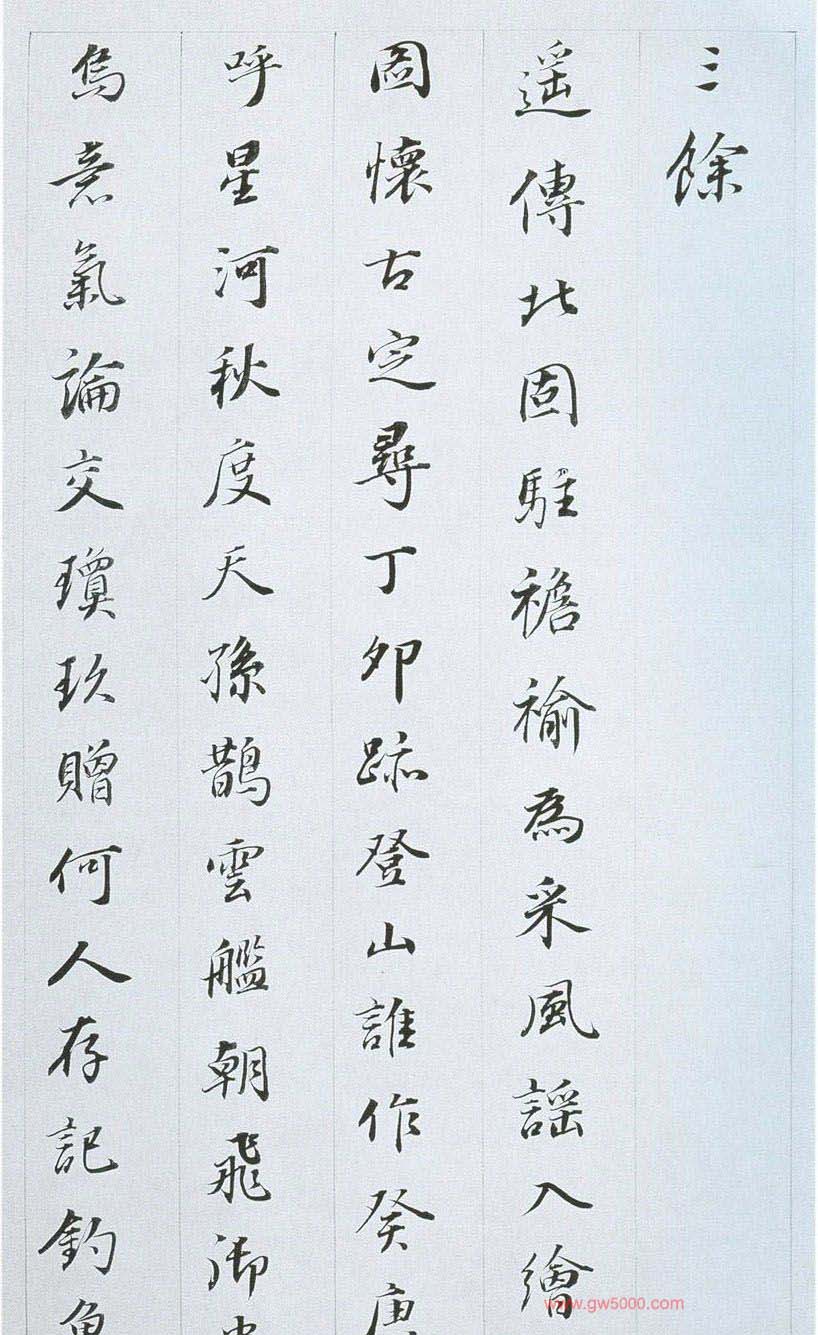 三餘
遥傳北固駐襜褕為采風謡入繪
圖懷古定尋丁卯跡登山誰作癸庚
呼星河秋度天孫鵲雲艦朝飛御史
烏意氣論交瓊玖贈何人存記釣魚
www.gw5000.com